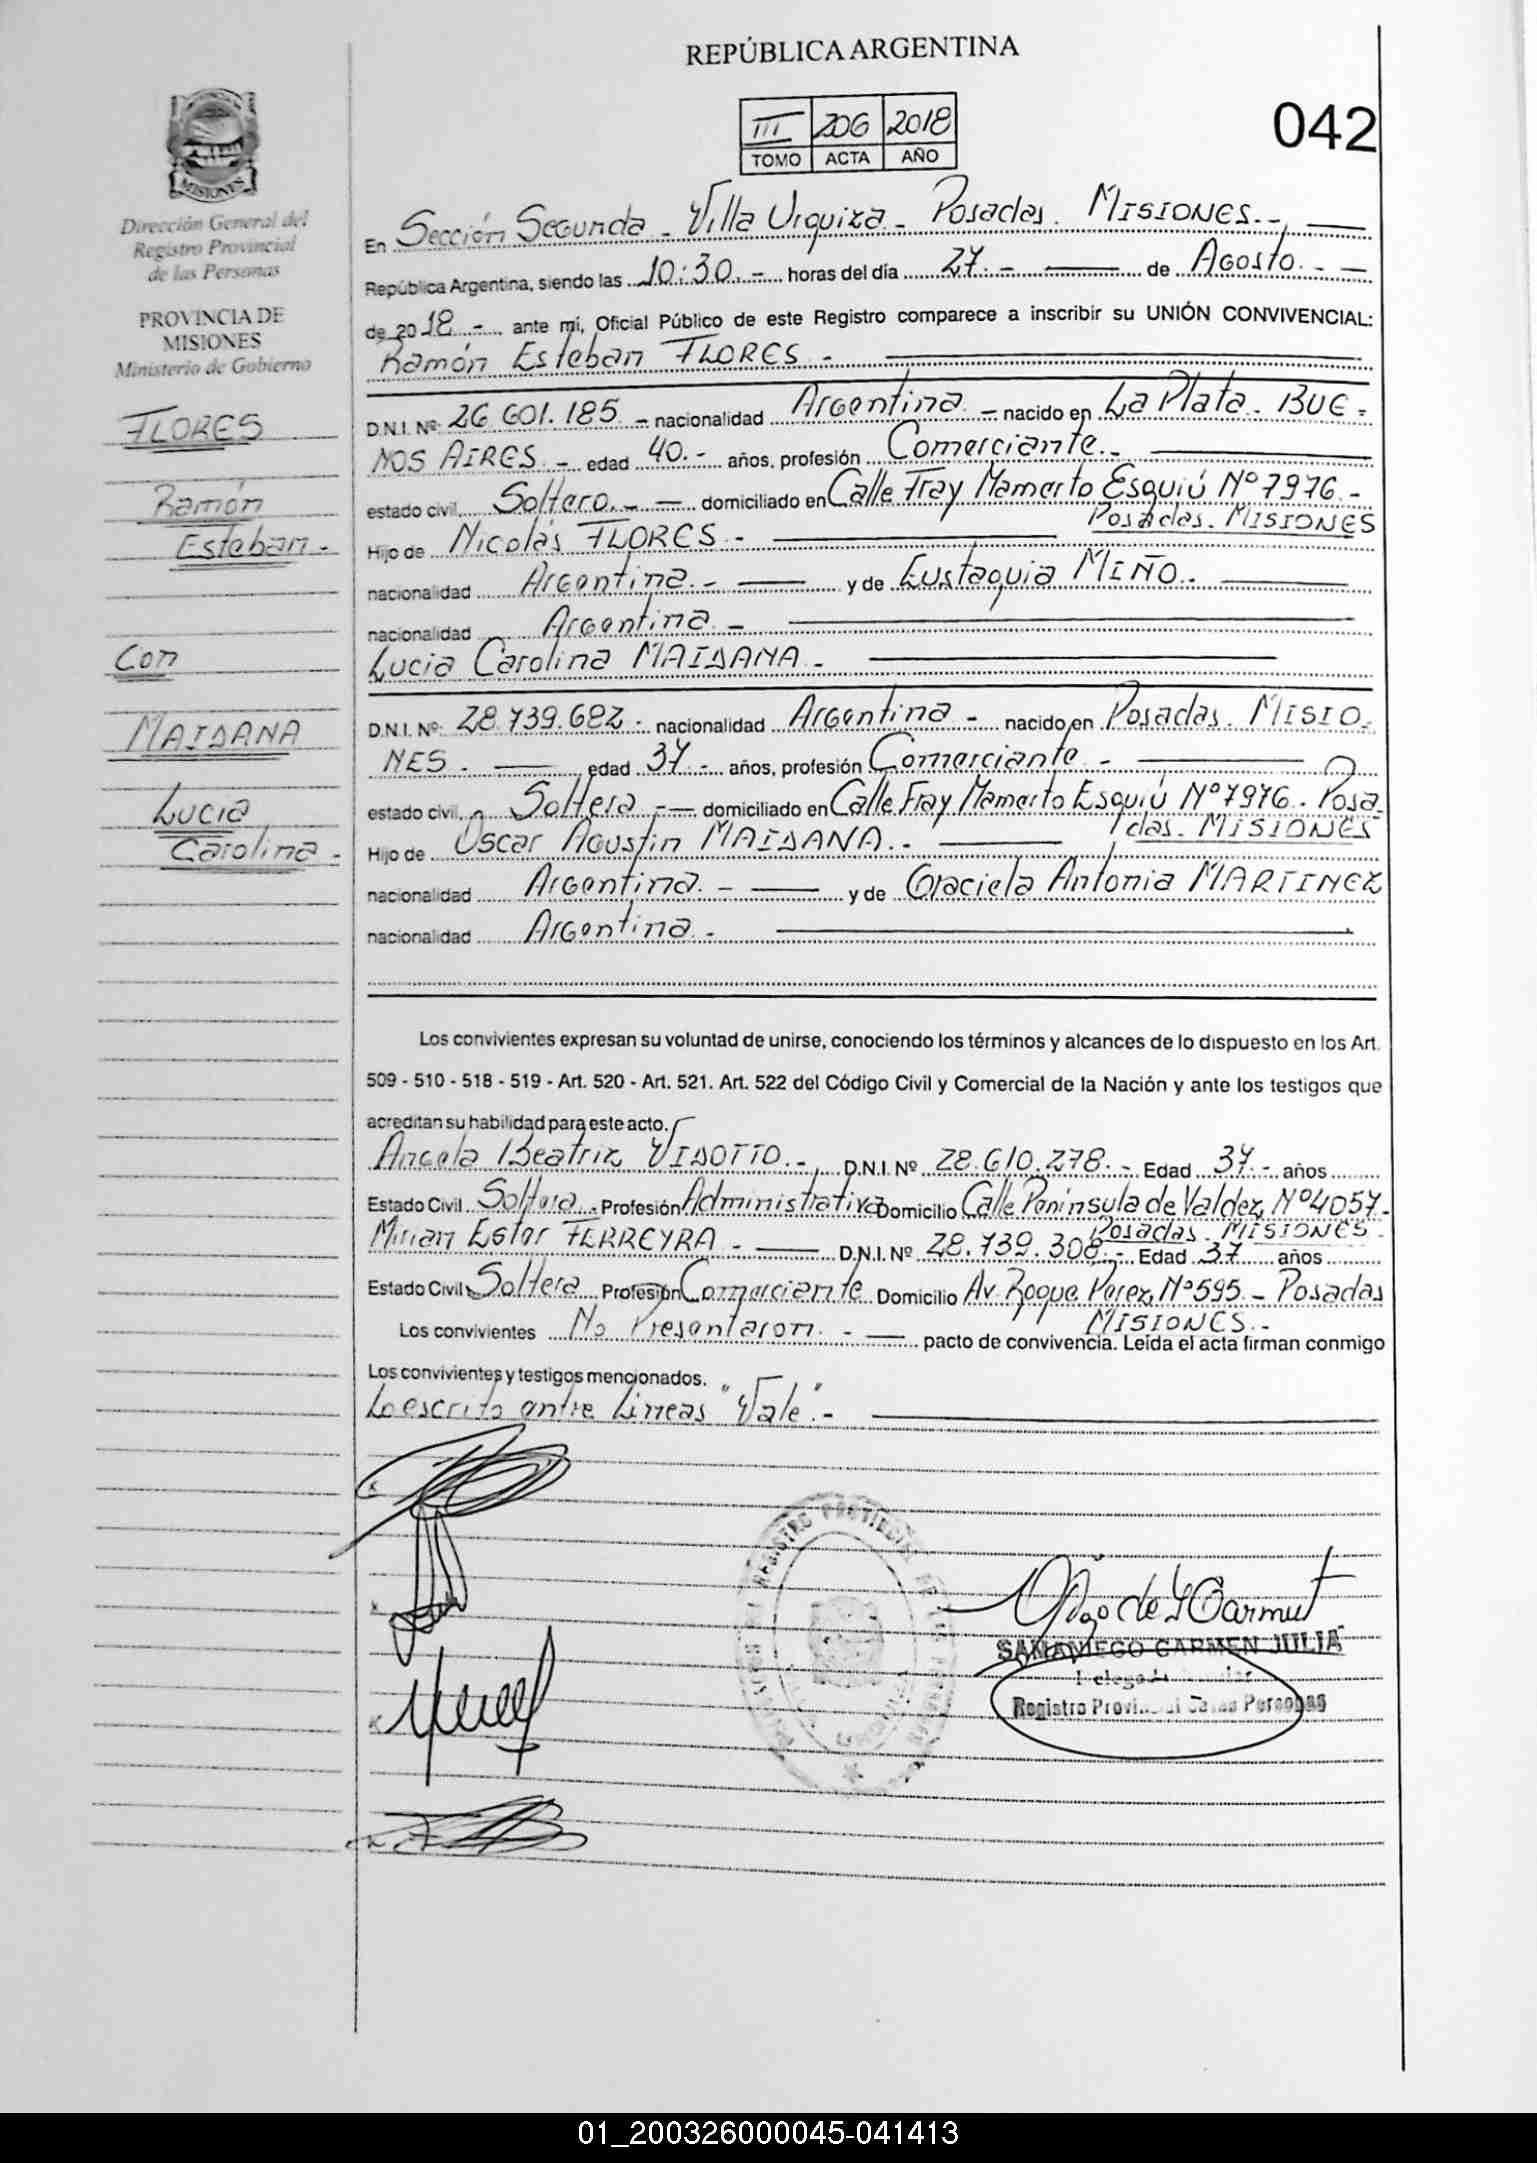 REPÚBLICA ARGENTINA
042
III 206 2018
TOMO ACTA AÑO
MISIONES
Dirección General del
Registro Provincial
de las Personas
PROVINCIA DE
MISIONES
Ministerio de Gobierno
FLORES
Ramón
Esteban.-
Con
MAIDANA
Lucia
Carolina.-
En Sección Segunda - Villa Urquiza - Posadas. MISIONES.-
República Argentina, siendo las 10:30.- horas del día 27.- de Agosto.-
de 2018.- ante mí, Oficial Público de este Registro comparece a inscribir su UNIÓN CONVIVENCIAL:
Ramón Esteban FLORES.-
D.N.I. Nº 26.601.185.- nacionalidad Argentina.- nacido en La Plata. BUE-
NOS AIRES.- edad 40.- años, profesión Comerciante.-
estado civil Soltero.- domiciliado en Calle Fray Mamerto Esquiú Nº 7976.-
Posadas. MISIONES
Hijo de Nicolás FLORES.-
nacionalidad Argentina.- y de Eustaquia MIÑO.-
nacionalidad Argentina.-
Lucia Carolina MAIDANA.-
D.N.I. Nº 28.739.682.- nacionalidad Argentina.- nacido en Posadas. MISIO-
NES.- edad 37.- años, profesión Comerciante.-
estado civil Soltera.- domiciliado en Calle Fray Mamerto Esquiú Nº 7976.- Posa-
das. MISIONES
Hijo de Oscar Agustin MAIDANA.-
nacionalidad Argentina.- y de Graciela Antonia MARTINEZ
nacionalidad Argentina.-
Los convivientes expresan su voluntad de unirse, conociendo los términos y alcances de lo dispuesto en los Art.
509 - 510 - 518 - 519 - Art. 520 - Art. 521. Art. 522 del Código Civil y Comercial de la Nación y ante los testigos que
acreditan su habilidad para este acto.
Angela Beatriz VIDOTTO.- D.N.I. Nº 28.610.278.- Edad 37.- años
Estado Civil Soltera.- Profesión Administrativa Domicilio Calle Peninsula de Valdez Nº 4057.-
Posadas. MISIONES.-
Mirian Ester FERREYRA.- D.N.I. Nº 28.739.308.- Edad 37 años
Estado Civil Soltera Profesión Comerciante Domicilio Av. Roque Perez Nº 595.- Posadas
MISIONES.-
Los convivientes No Presentaron.- pacto de convivencia. Leída el acta firman conmigo
Los convivientes y testigos mencionados.
Lo escrito entre lineas "Vale".-
SAMANIEGO CARMEN JULIA
Registro Provincial de las Personas
01_200326000045-041413